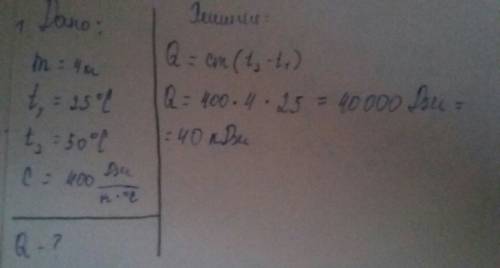 1 Дано:
m = 4 кг
t₁ = 25°C
t₂ = 50°C
C = 400 Дж/кг·°C
Q - ?
Решение:
Q = cm(t₂-t₁)
Q = 400·4·25 = 40000 Дж =
= 40 кДж